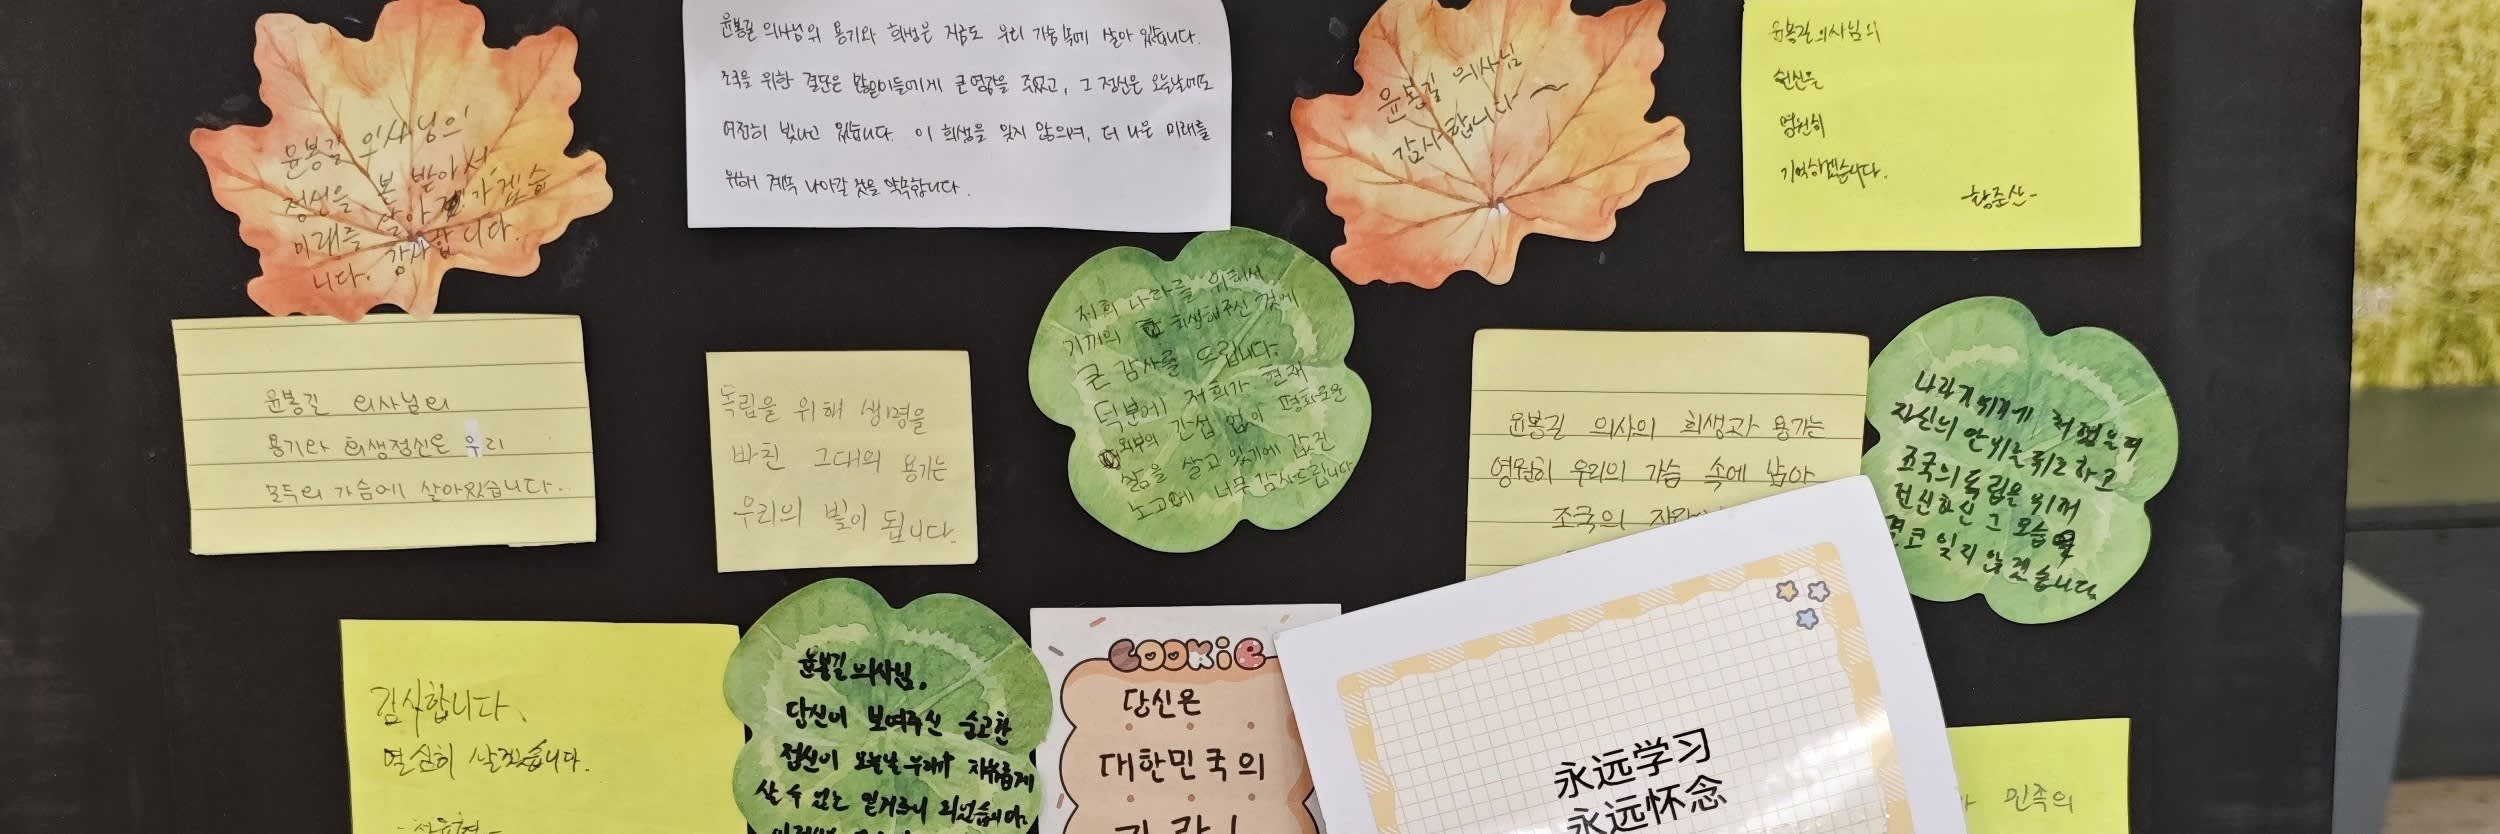 윤봉길 의사님의
정신을 본 받아서,
미래를 살아 가겠습
니다. 감사합니다.
윤봉길 의사님의 용기와 희생은 지금도 우리 가슴속에 살아 있습니다.
조국을 위한 결단은 많은이들에게 큰 영감을 주었고, 그 정신은 오늘날에도
여전히 빛나고 있습니다. 이 희생을 잊지 않으며, 더 나은 미래를
위해 계속 나아갈 것을 약속합니다.
윤봉길 의사님
감사합니다~
윤봉길의사님의
헌신은
영원히
기억하겠습니다.
황준산-
윤봉길 의사님의
용기와 희생정신은 우리
모두의 가슴에 살아있습니다..
독립을 위해 생명을
바친 그대의 용기는
우리의 빛이 됩니다.
저희 나라를 위해서
기꺼의 희생해주신 것에
큰 감사를 드립니다.
덕분에 저희가 현재
외부의 간섭 없이 평화로운
삶을 살고 있기에 값진
노고에 너무 감사드립니다
윤봉길 의사의 희생과 용기는
영원히 우리의 가슴 속에 남아
조국의
나라지키기에
자신의 안위는 뒤로 하고
조국의 독립을 위해
헌신하신 그 모습을
결코 잊지 않겠습니다.
감사합니다.
열심히 살겠습니다.
윤봉길의사님,
당신이 보여주신 숭고한
정신이 오늘날 우리가 자유롭게
살 수 있는 밑거름이 되었습니다.
COOKiE
당신은
대한민국의
永远学习
永远怀念
민족의